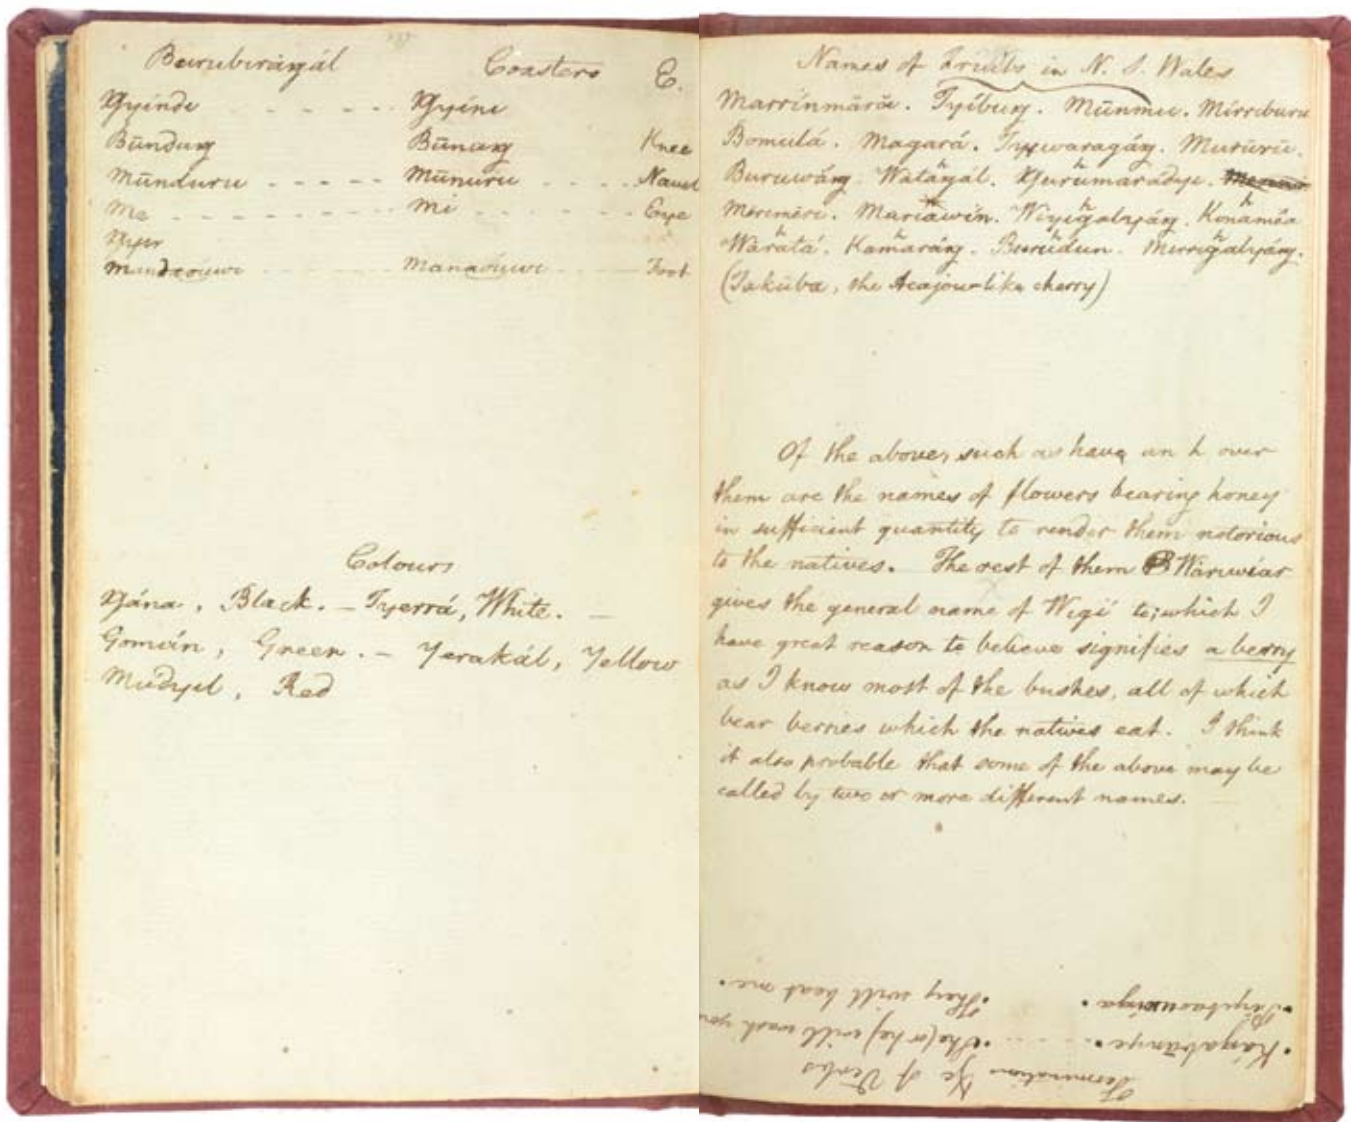 Buruberáŋál Coasters E.
Ŋyínde - - - - Ŋyíni
Būnduŋ Būnuŋ Knee
Mūnduru - - - - - Mūnuru - - - - Navel
Me - - - - - Mi - - - - - Eye
Ŋyer
Mandaoúwi - - - - - Manaoúwi - - - - Foot
Colours
Ŋána, Black. – Tyerrá, White. –
Gomoín, Green. – Yerakál, Yellow
Mudyil, Red
Names of Fruits in N. S. Wales
Marrinmāra. Tyíbuŋ. Mūnmu. Mirriburu
Bomulá. Magará. Tyiwaragáŋ. Mururu.
Buruwáŋ. Wataŋál. Ŋurumaradye.
Meremére. Mariáwin. Wiyigalyáŋ. Konaméa
Waratá. Kamaráŋ. Burudun. Mirrigalyáŋ.
(Takúba, the Acajou-like cherry)
Of the above, such as have an h over
them are the names of flowers bearing honey
in sufficient quantity to render them notorious
to the natives. The rest of them Wáruwear
gives the general name of Wigí to; which I
have great reason to believe signifies a berry
as I know most of the bushes, all of which
bear berries which the natives eat. I think
it also probable that some of the above may be
called by two or more different names.
Termination Ŋe of Verbs
Káŋabūnye. - - - - She (or he) will wash you
Piyibaouwíŋa. They will beat me.